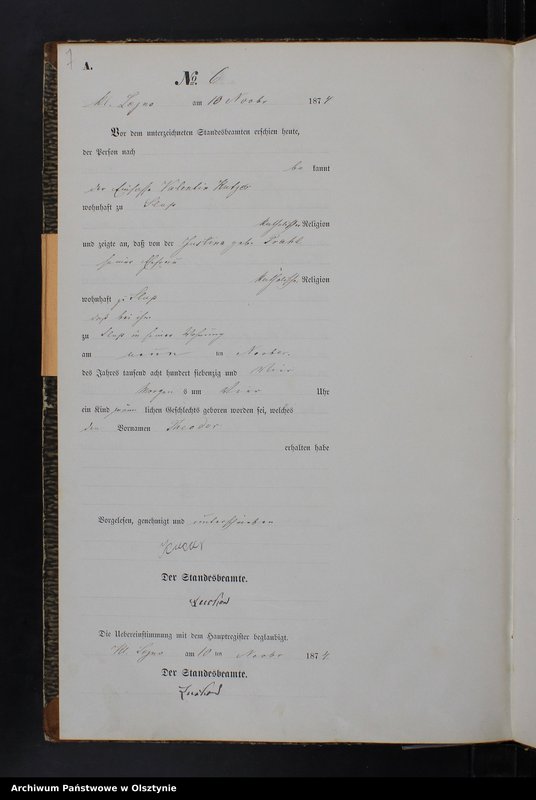 7
A.
№ 6
Kl. Lezno am 10 Novbr 1874
Vor dem unterzeichneten Standesbeamten erschien heute,
der Person nach
be kannt
der Valentin
wohnhaft zu
katholischer Religion
und zeigte an, daß von der Justina geb.
seiner Ehefrau
katholischer Religion
wohnhaft zu
daß bei ihr
zu in seiner Wohnung
am neun ten Novbr.
des Jahres tausend acht hundert siebenzig und vier
Morgen s um vier Uhr
ein Kind männ lichen Geschlechts geboren worden sei, welches
den Vornamen Theodor
erhalten habe
Vorgelesen, genehmigt und unterschrieben
Der Standesbeamte.
Die Uebereinstimmung mit dem Hauptregister beglaubigt.
Kl. Lezno am 10 ten Novbr 1874.
Der Standesbeamte.
Archiwum Państwowe w Olsztynie